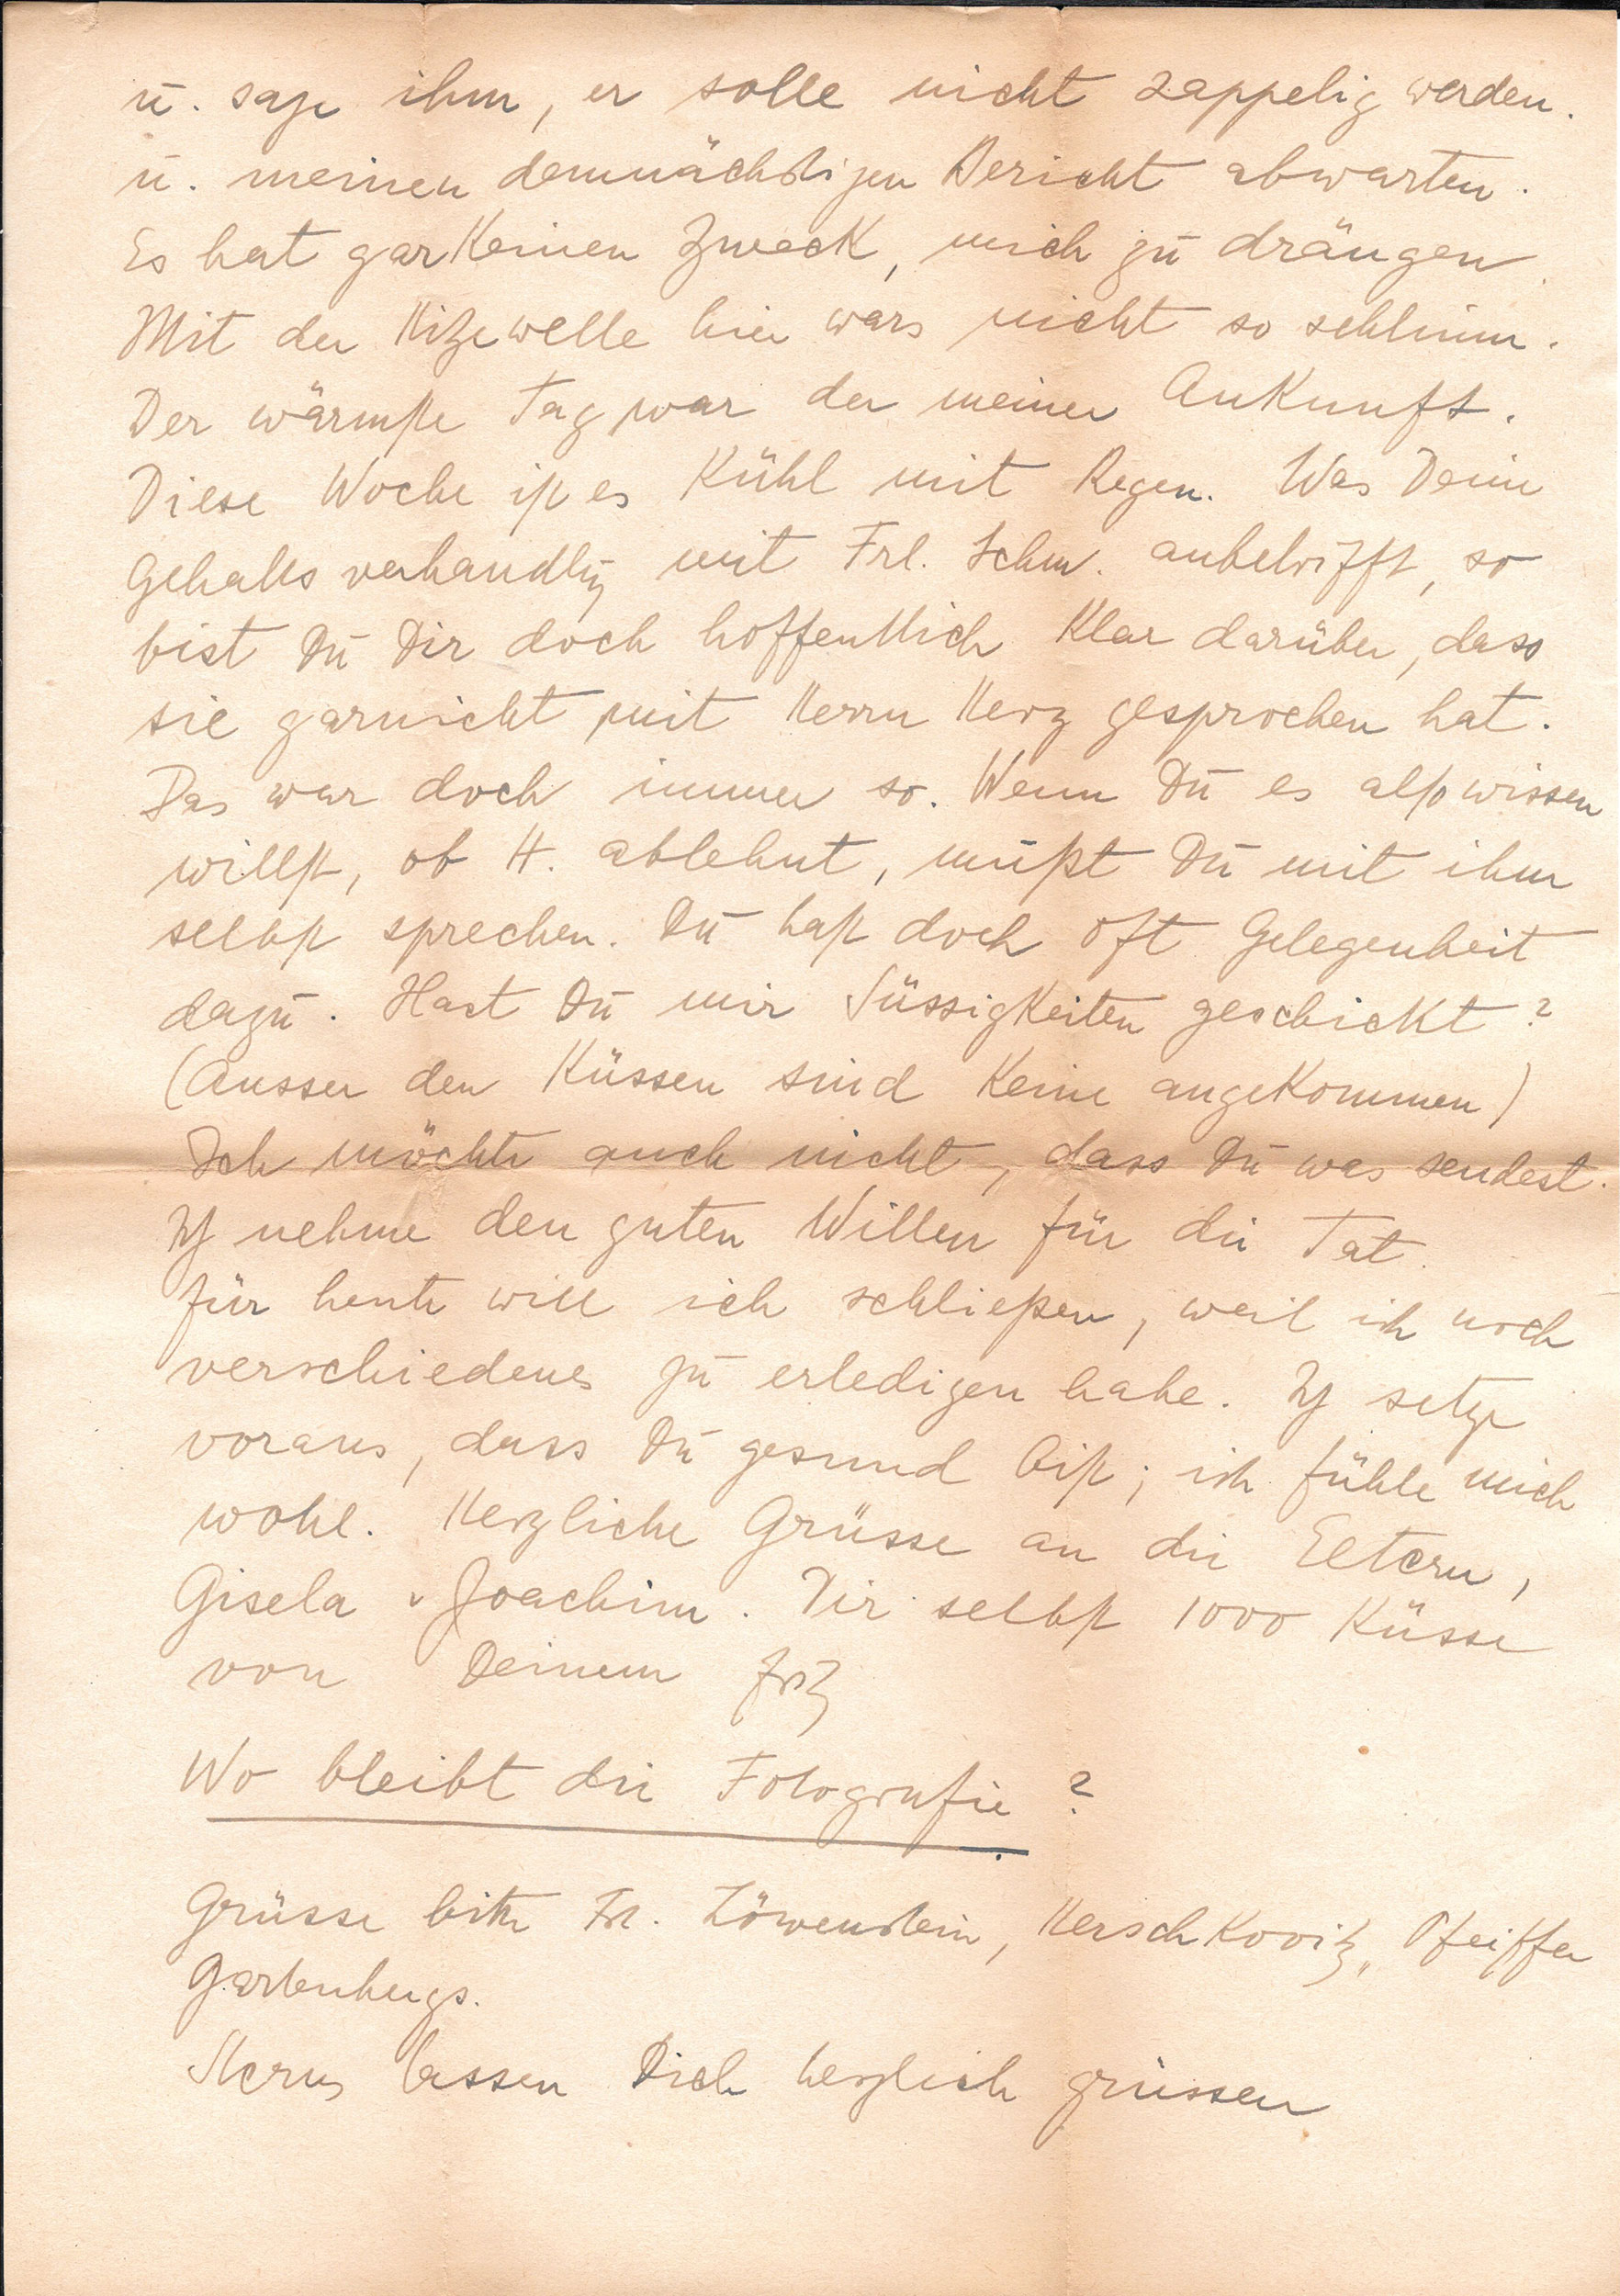 u. sage ihm, er solle nicht zappelig werden.
u. meinen demnächstigen Bericht abwarten.
Es hat gar keinen Zweck, mich zu drängen.
Mit der Hitzewelle hier wars nicht so schlimm.
Der wärmste Tag war der meiner Ankunft.
Diese Woche ist es kühl mit Regen. Was Deine
Gehaltsverhandlg mit Frl. Schm. anbetrifft, so
bist Du Dir doch hoffentlich klar darüber, dass
sie garnicht mit Herrn Herz gesprochen hat.
Das war doch immer so. Wenn Du es also wissen
willst, ob H. ablehnt, mußt Du mit ihm
selbst sprechen. Du hast doch oft Gelegenheit
dazu. Hast Du mir Süssigkeiten geschickt?
(Ausser den Küssen sind keine angekommen)
Ich möchte auch nicht, dass Du was sendest.
Ich nehme den guten Willen für die Tat.
Für heute will ich schließen, weil ich noch
verschiedenes zu erledigen habe. Ich setze
voraus, dass Du gesund bist; ich fühle mich
wohl. Herzliche Grüsse an die Eltern,
Gisela u Joachim. Dir selbst 1000 Küsse
von Deinem
Wo bleibt die Fotografie?
Grüsse bitte Frl. Löwenstein, Herschkovitz, Pfeiffer
Gartenbergs.
Sterns lassen Dich herzlich grüssen